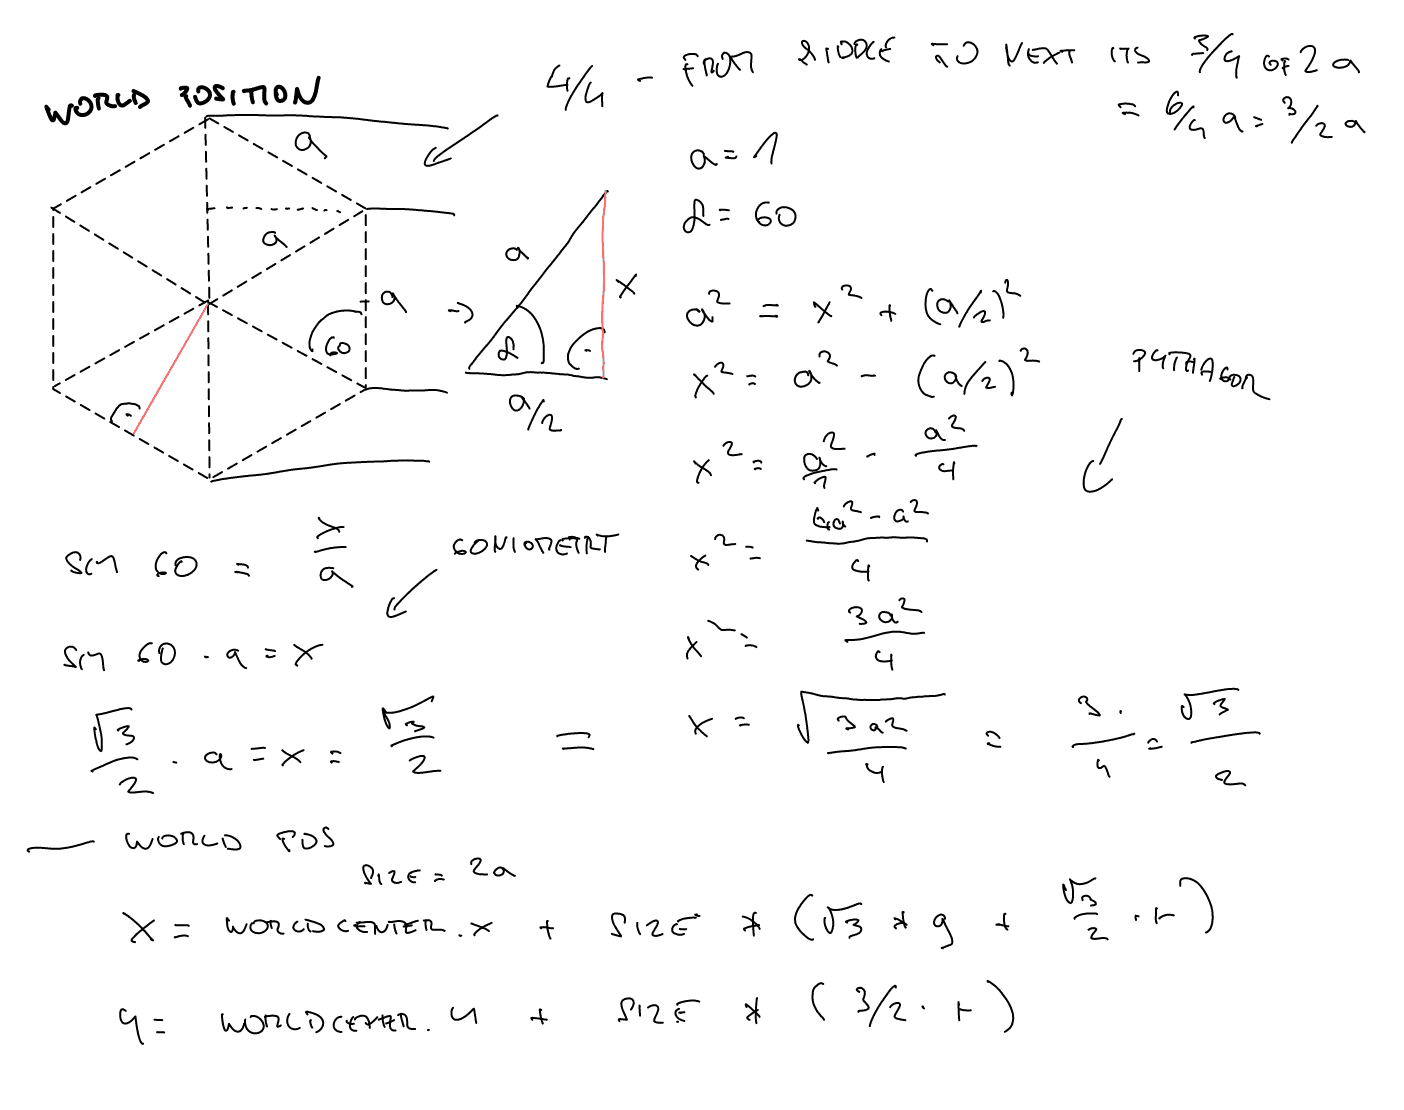 WORLD POSITION
4/4 - FROM MIDDLE TO NEXT ITS 3/4 OF 2a
= 6/4 a = 3/2 a
a
a
a
60
a
x
α
a/2
a = 1
α = 60
a² = x² + (a/2)²
x² = a² - (a/2)²
x² = a²/1 - a²/4
x² = (4a² - a²)/4
x² = 3a²/4
PYTHAGOR
sin 60 = x/a
GONIOMETRY
sin 60 . a = x
√3/2 . a = x = √3/2 = x = √(3a²/4) = 3/4 = √3/2
— WORLD POS
SIZE = 2a
X = WORLDCENTER.X + SIZE * (√3 * q + √3/2 . r)
y = WORLDCENTER.y + SIZE * (3/2 . r)